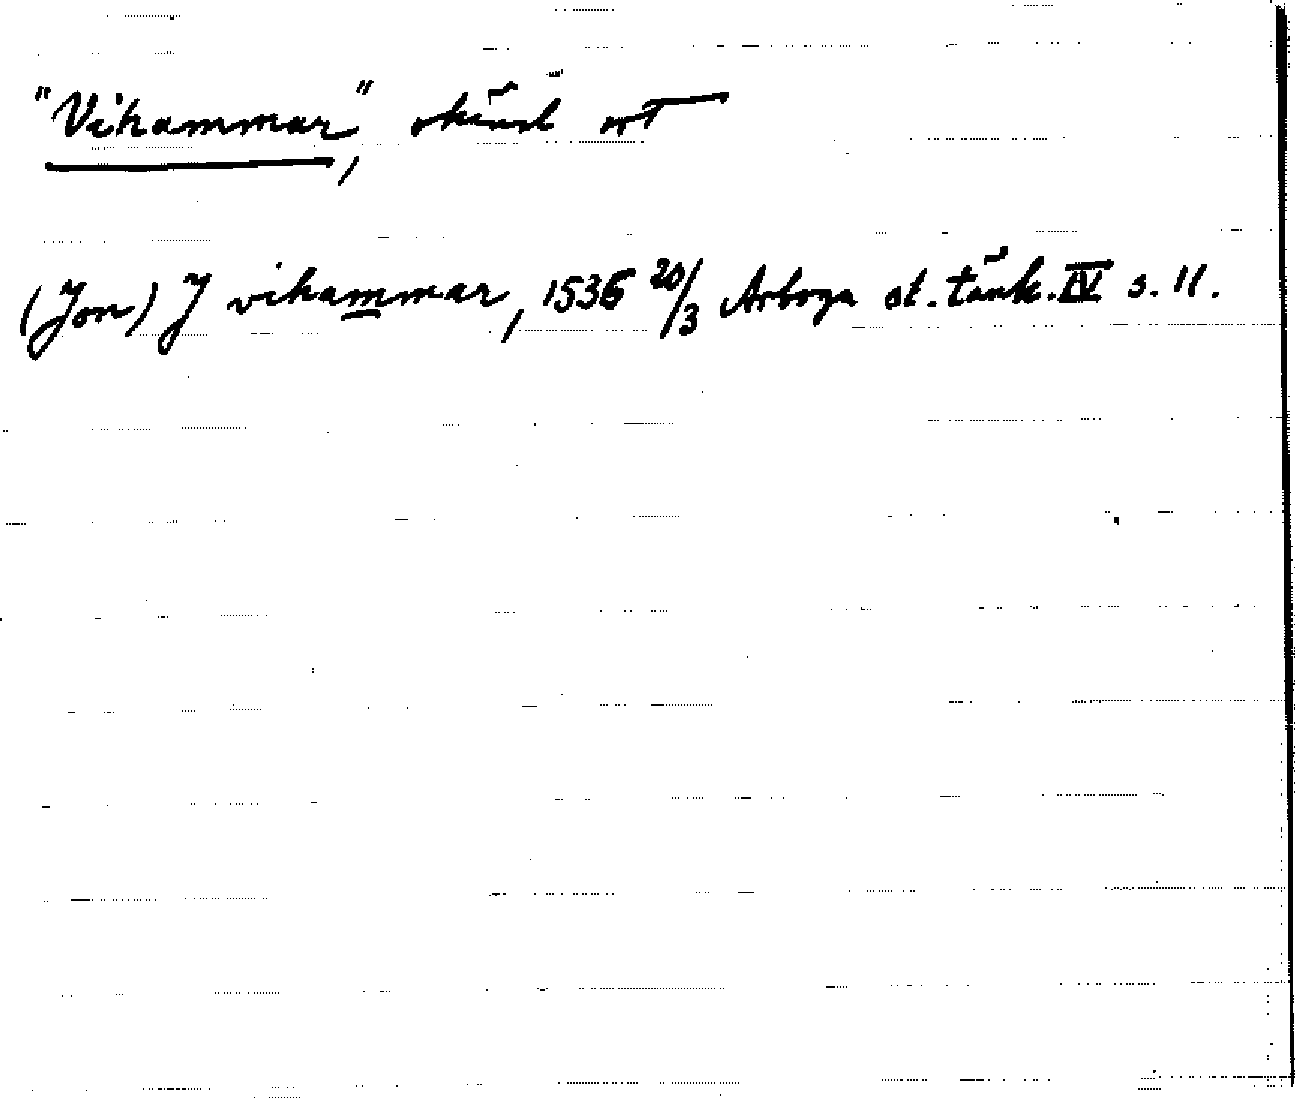 "Vihammar", okänd ort
(Jon) J vihammar, 1536 20/3 Arboga st. tänk. IV s. 11.